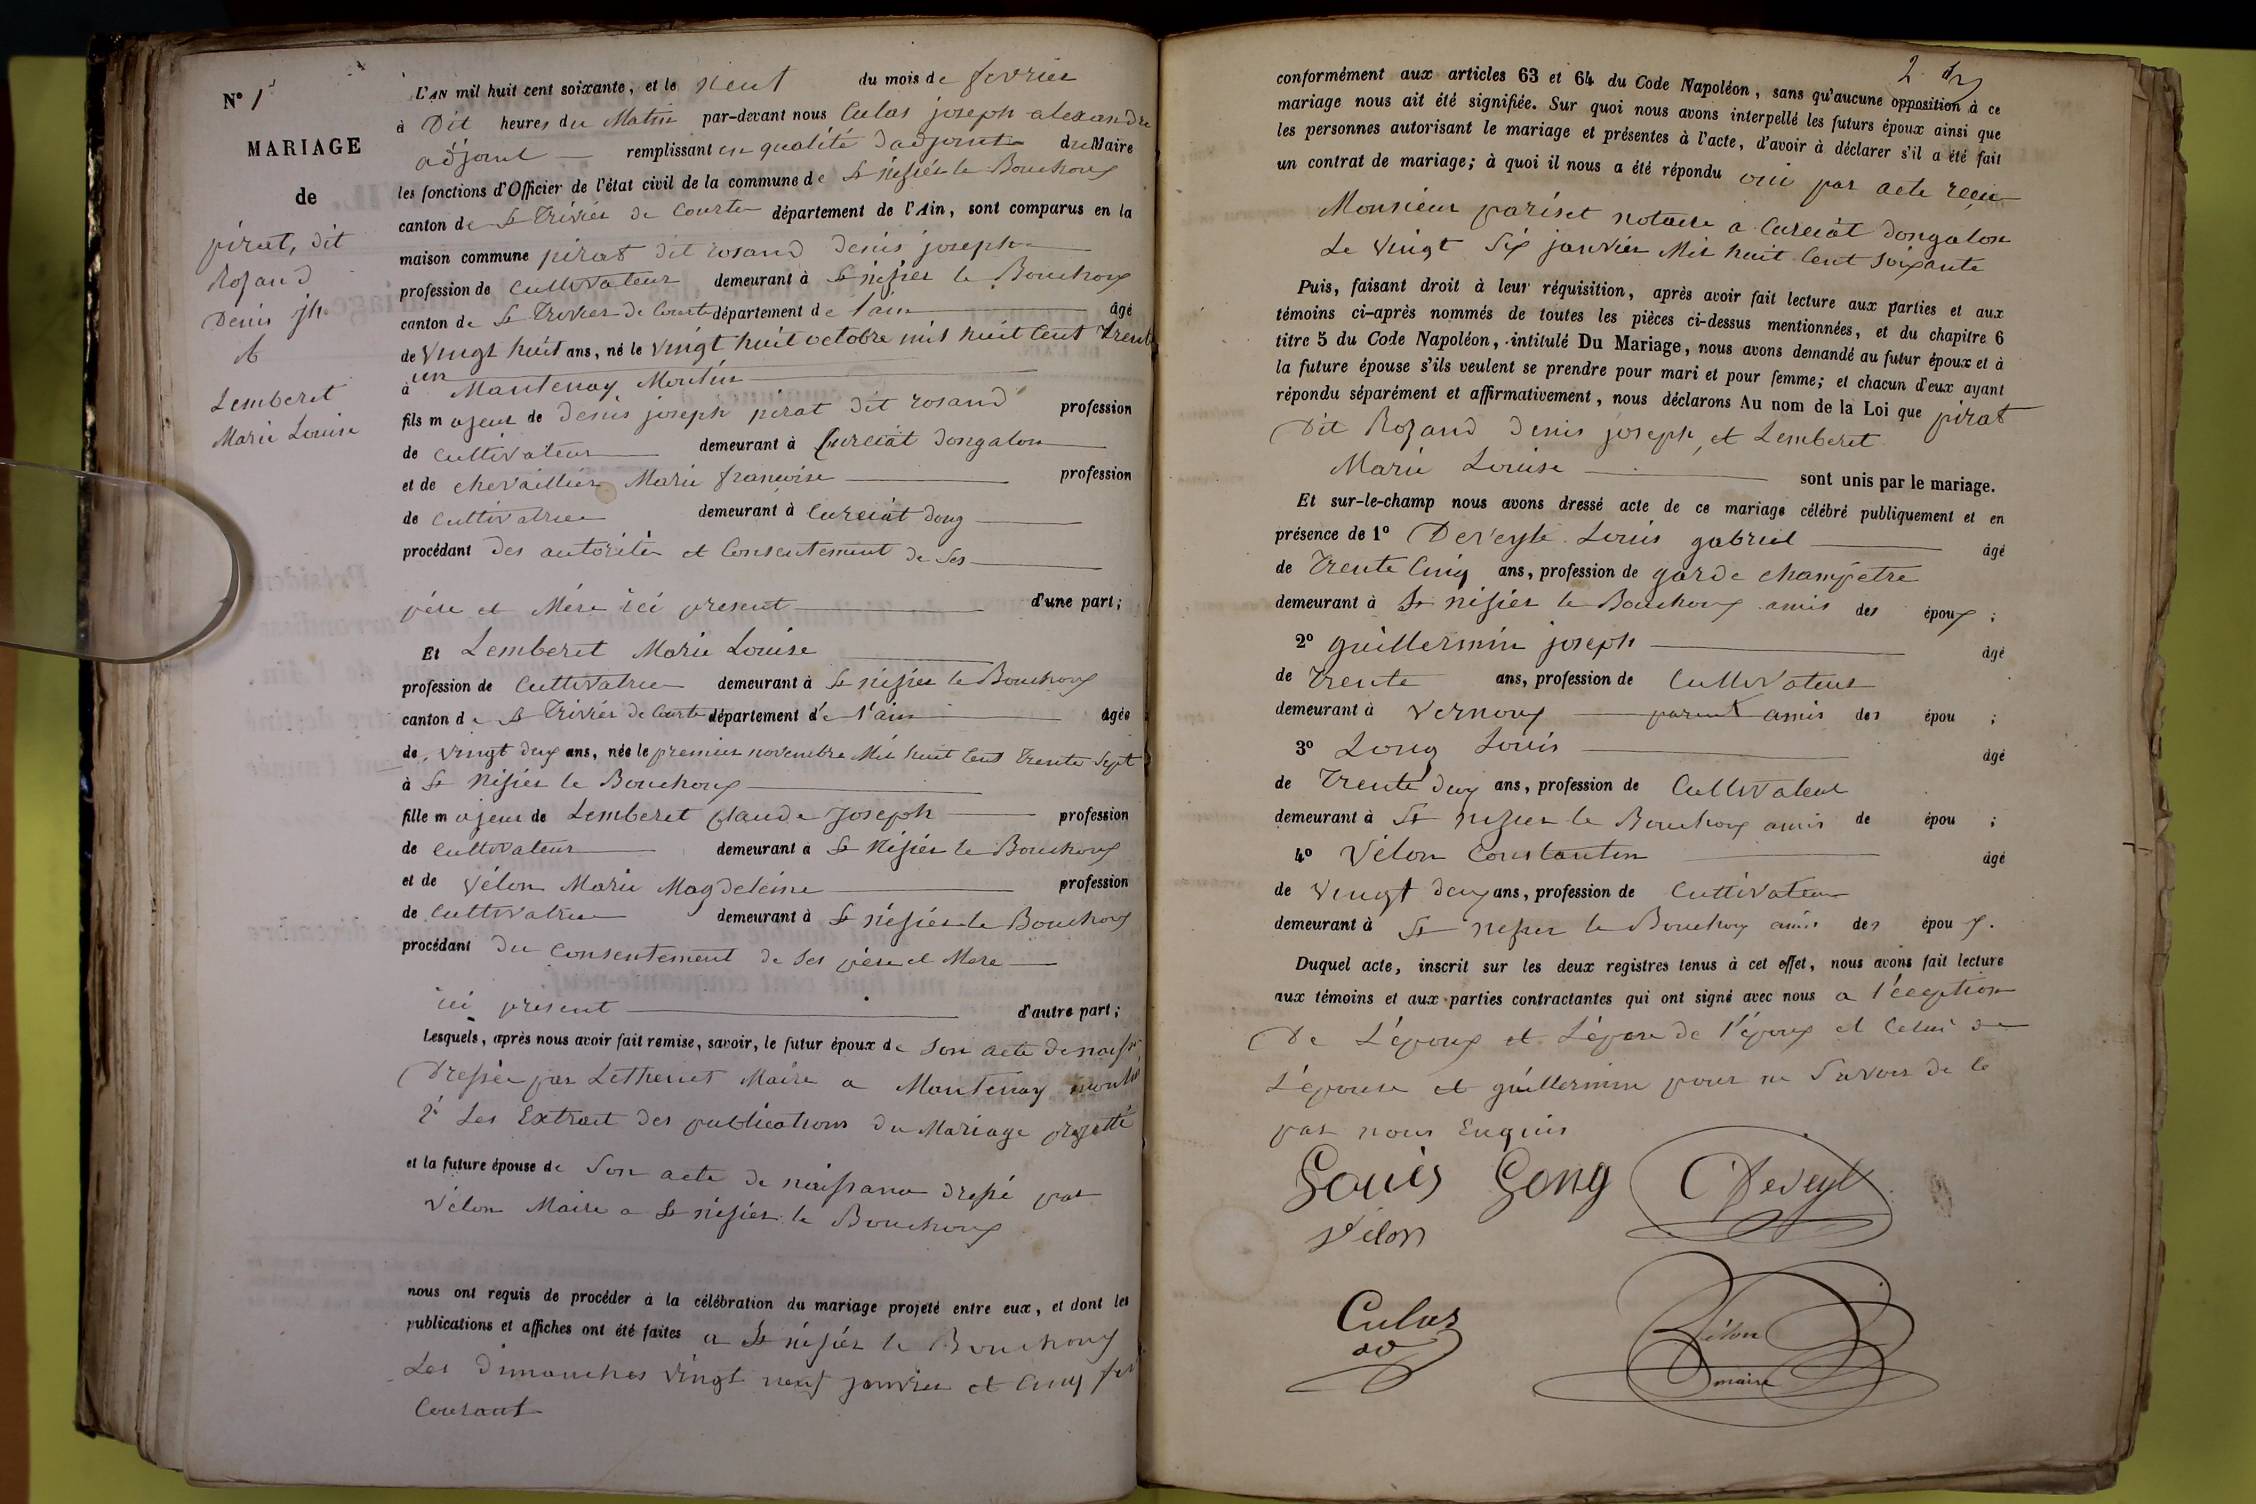 N° 1
MARIAGE
de
pirat, dit
Rozand
Denis jh.
&
Lemberet
Marie Louise
L'AN mil huit cent soixante, et le neuf du mois de fevrier
à Dit heures du Matin par-devant nous Culas joseph alexandre
adjoint remplissant en qualité dadjoint du Maire
les fonctions d'Officier de l'état civil de la commune de St nisiér le Bouchoux
canton de St Triviér de Courte département de l'Ain, sont comparus en la
maison commune pirat dit rosand denis joseph
profession de Cultivateur demeurant à St nisier le Bouchoux
canton de St Trivier de Courte département de l'ain âgé
de Vingt huit ans, né le Vingt huit octobre mil huit Cent Trente
un
à Mantenay Montlin
fils majeur de denis joseph pirat dit rosand profession
de Cultivateur demeurant à Curciat dongalon
et de chevaillier Marie francoise profession
de Cultivatrice demeurant à Curciat dong
procédant des autorité et Consentement de Ses
pére et Mére ici present d'une part;
Et Lemberet Marie Louise
profession de Cultivatrice demeurant à St nisier le Bouchoux
canton de St Triviér de Courte département de l'ain âgée
de Vingt deux ans, née le premier novembre Mil huit Cent Trente Sept
à St Nisier le Bouchoux
fille majeur de Lemberet Claude Joseph profession
de Cultivateur demeurant à St Nisiér le Bouchoux
et de Vélon Marie Magdeleine profession
de Cultivatrice demeurant à St nésiér le Bouchoux
procédant du Consentement de Ses pére et Mere
ici present d'autre part;
Lesquels, après nous avoir fait remise, savoir, le futur époux de Son acte de naiss
Dressée par Lethenet Maire a Mantenay montlin
2° Les Extrait des publications du Mariage projetté
et la future épouse de Son acte de naissance dressé par
Vélon Maire a St nisiér le Bouchoux
nous ont requis de procéder à la célébration du mariage projeté entre eux, et dont les
publications et affiches ont été faites a St nisiér le Bouchoux
Les dimanches Vingt neuf janvier et Cinq fev
Courant
2
conformément aux articles 63 et 64 du Code Napoléon, sans qu'aucune opposition à ce
mariage nous ait été signifiée. Sur quoi nous avons interpellé les futurs époux ainsi que
les personnes autorisant le mariage et présentes à l'acte, d'avoir à déclarer s'il a été fait
un contrat de mariage; à quoi il nous a été répondu oui par acte recu
Monsieur pariset notaire a Curciat dongalon
Le Vingt Six janvier Mil huit Cent Soixante
Puis, faisant droit à leur réquisition, après avoir fait lecture aux parties et aux
témoins ci-après nommés de toutes les pièces ci-dessus mentionnées, et du chapitre 6
titre 5 du Code Napoléon, intitulé Du Mariage, nous avons demandé au futur époux et à
la future épouse s'ils veulent se prendre pour mari et pour femme; et chacun d'eux ayant
répondu séparément et affirmativement, nous déclarons Au nom de la Loi que pirat
Dit Rozand denis joseph, et Lemberet
Marie Louise sont unis par le mariage.
Et sur-le-champ nous avons dressé acte de ce mariage célébré publiquement et en
présence de 1° Deveyle Louis gabriel âgé
de Trente Cinq ans, profession de garde champêtre
demeurant à St nisier le Bouchoux amis des époux;
2° guillermin joseph âgé
de Trente ans, profession de Cultivateur
demeurant à Vernoux parent amis des épou ;
3° Long Louis âgé
de Trente deux ans, profession de Cultivateur
demeurant à St nizier le Bouchoux amis de épou ;
4° Vélon Constantin âgé
de Vingt deux ans, profession de Cultivateur
demeurant à St nisier le Bouchoux amis des époux.
Duquel acte, inscrit sur les deux registres tenus à cet effet, nous avons fait lecture
aux témoins et aux parties contractantes qui ont signé avec nous a l'éception
De L'époux et Lépere de l'époux et Celui de
L'épouse et guillermin pour ne Savoir de le
par nous Enquis
Louis Long Deveyle
Vélon
Culas
ad
Vélon
maire